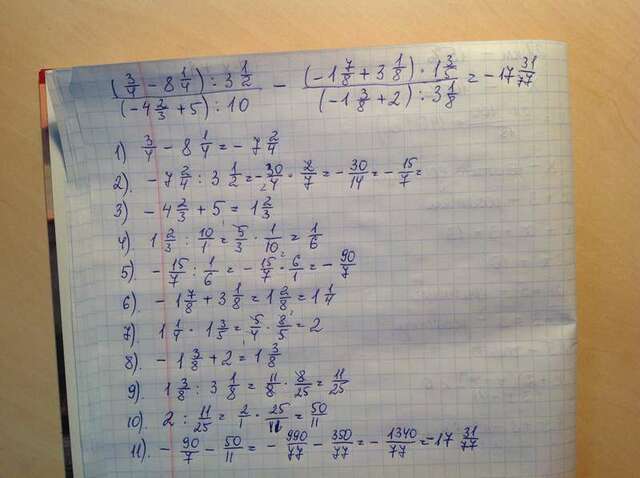 (3/4 - 8 1/4) : 3 1/2 / (-4 2/3 + 5) : 10 - (-1 7/8 + 3 1/8) · 1 3/5 / (-1 3/8 + 2) : 3 1/8 = -17 31/77
1) 3/4 - 8 1/4 = - 7 2/4
2). - 7 2/4 : 3 1/2 = - 30/4 · 2/7 = - 30/14 = - 15/7 =
3) - 4 2/3 + 5 = 1 2/3
4). 1 2/3 : 10/1 = 5/3 · 1/10 = 1/6
5). - 15/7 : 1/6 = - 15/7 · 6/1 = - 90/7
6) - 1 7/8 + 3 1/8 = 1 2/8 = 1 1/4
7). 1 1/4 · 1 3/5 = 5/4 · 8/5 = 2
8). - 1 3/8 + 2 = 1 3/8
9). 1 3/8 : 3 1/8 = 11/8 · 8/25 = 11/25
10). 2 : 11/25 = 2/1 · 25/11 = 50/11
11). - 90/7 - 50/11 = - 990/77 - 350/77 = - 1340/77 = -17 31/77